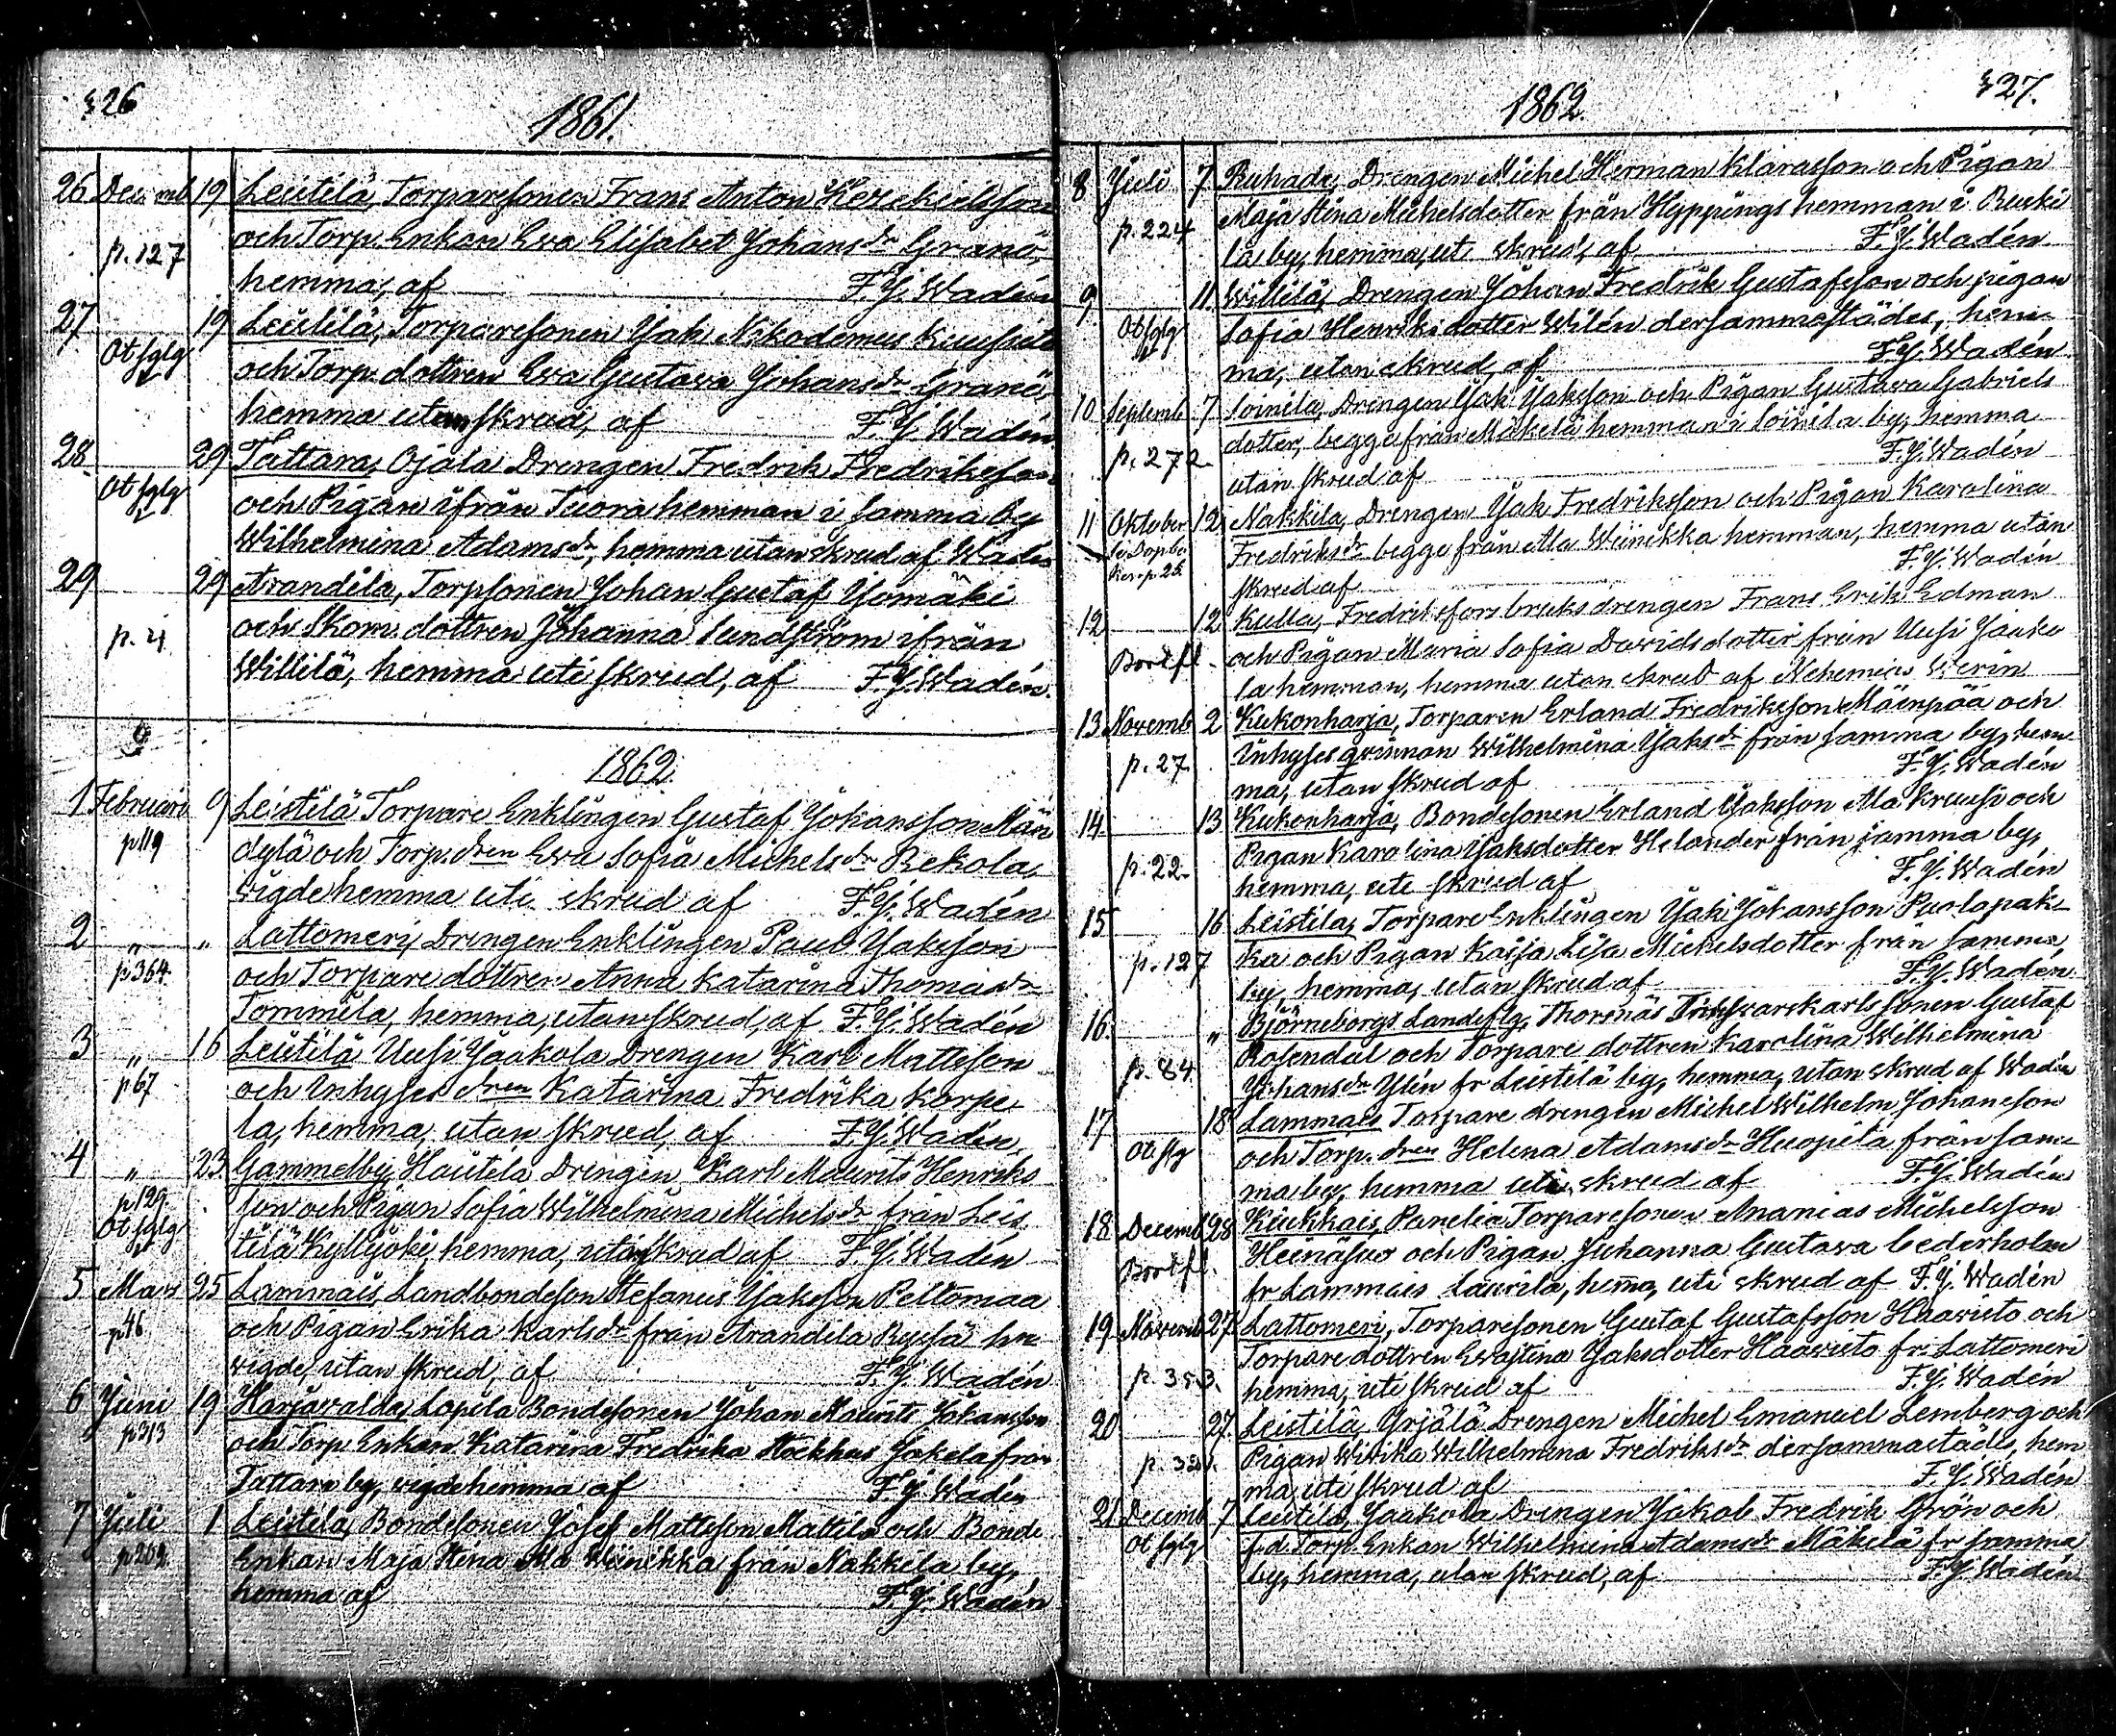 326
1861.
26 Decemb 19 Leistilä, Torparesonen Frans Anton Hezekielsson
p. 127 och Torp. Enkan Eva Elisabet Johans dr Granö,
hemma, af F. J. Wadén
27 19 Leistilä, Torparesonen Jak Nikodemus
Ot fglg och Torp. dottren Eva Gustava Johans dr Granö,
hemma utan skrud, af F. J. Wadén
28. 29 Tattara, Ojala Drengen Fredrik Fredriksson
Ot fglg och Pigan ifrån Tuora hemman i samma by
Wilhelmina Adams dr, hemma utan skrud af Wadén
29 29 Arandila, Torpsonen Johan Gustaf Yomäki
p. 4 och Skom. dottren Johanna Sundström ifrån
Willilä, hemma uti skrud, af F. J. Wadén.
1862.
1 Februari 9 Leistilä Torpare Enklingen Gustaf Johansson Män
p 119 dylä och Torp. dren Eva Sofia Michels dr Rekola,
vigde hemma uti skrud af F. J. Wadén
2 " " Lattomeri, Drengen Enklingen Paul Jaksson
p 364 och Torpare dottren Anna Katarina Thomas dr
Tommila, hemma, utan skrud, af F. J. Wadén
3 " 16 Leistilä Uusi Jaakola Drengen Karl Mattsson
p 67 och Inhyses dren Katarina Fredrika Korpe
la, hemma, utan skrud, af F. J. Wadén,
4 " 23. Gammelby, Hautela Drengen Karl Maurits Henriks
p 129. son och Pigan Sofia Wilhelmina Michels dr från Leis
Ot fglg tilä Kyllijoki, hemma, utan skrud af F. J. Wadén
5 Mars 25 Lammais, Landbondeson Stefanus Jaksson Peltomaa
p 46 och Pigan Erika Karls dr från Arandila Ryssä
vigde, utan skrud, af F. J. Wadén
6 Juni 19 Harjavalda, Lopela Bondesonen Johan Maurits Johansson
p 313 och Torp. Enkan Katarina Fredrika Stockhus Jakela från
Tattara by, vigde hemma af F. J. Wadén
7 Juli 1 Leistilä, Bondesonen Josef Mattsson Mattila och Bonde
p 269. Enkan Maja Stina Ala Wiinikka från Nakkila by,
hemma af F. J. Wadén
327.
1862.
8 Juli 7 Ruhade, Drengen Michel Herman Klarasson och Pigan
p. 224 Maja Stina Michelsdotter från Hyppings hemman i Ruski
la by, hemma, uti skrud, af F. J. Wadén
9 11. Willilä, Drengen Johan Fredrik Gustafsson och pigan
Ot fglg Sofia Henriksdotter Wilén dersammastädes, hem
ma, utan skrud, af F. J. Wadén
10 Septemb 7 Soinila, Drengen Jak Jaksson och Pigan Gustava Gabriels
p. 272 dotter, begge från Mäkelä hemman i Soinila by, hemma
utan skrud af F. J. Wadén
11 Oktober 12 Nakkila, Drengen Jak Fredriksson och Pigan Karolina
Fredriks dr begge från Ala Wiinikka hemman, hemma utan
skrud af F. J. Wadén
12 12 Kulla, Fredriksfors bruksdrengen Frans Erik Edman
och Pigan Maria Sofia Davidsdotter från Uusi Jaako
la hemman, hemma utan skrud af Nehemias Werin
13 Novemb 2 Kukonharja, Torparen Erland Fredriksson Mäenpää och
p. 27 Inhyses qvinnan Wilhelmina Jaks dr från samma by, hem
ma, utan skrud af F. J. Wadén
14 13 Kukonharja, Bondesonen Erland Jaksson Ala Kruusi och
p. 22 Pigan Karolina Jaksdotter Helander från samma by,
hemma, uti skrud af F. J. Wadén
15 16 Leistilä, Torpare Enklingen Jak Johansson Puolapak
p. 127 ka och Pigan Kaisa Lisa Michelsdotter från samma
by, hemma, utan skrud af F. J. Wadén
16. " Björneborgs Landsflg, Thornäs Gustaf
p. 84 Rosendal och Torpare dottren Karolina Wilhelmina
Johans dr Ylén fr Leistilä by, hemma, utan skrud af Wadén
17 18 Lammais Torpare drengen Michel Wilhelm Johansson
Ot flg och Torp. dren Helena Adams dr Huopila från sam
ma by, hemma uti skrud af F. J. Wadén
18 Decemb 28 Kiukkais, Panelia Torparesonen Ananias Michelsson
Heinäsuo och Pigan Johanna Gustava Cederholm
fr Lammais Laurila, hemma, uti skrud af F. J. Wadén
19 Novemb 27 Lattomeri, Torparesonen Gustaf Gustafsson Haavisto och
p. 353. Torpare dottren Evastina Jaksdotter Haavisto fr. Lattomeri
hemma, uti skrud af F. J. Wadén
20 27. Leistilä, Yrjälä Drengen Michel Emanuel Lemberg och
Pigan Wivika Wilhelmina Fredriks dr dersammastädes, hem
ma, uti skrud af F. J. Wadén
21. Decemb 7 Leistilä, Jaakola Drengen Jakob Fredrik Grön och
Ot fglg f.d. Torp. Enkan Wilhelmina Adams dr Mäkelä fr samma
by, hemma, utan skrud, af F. J. Wadén